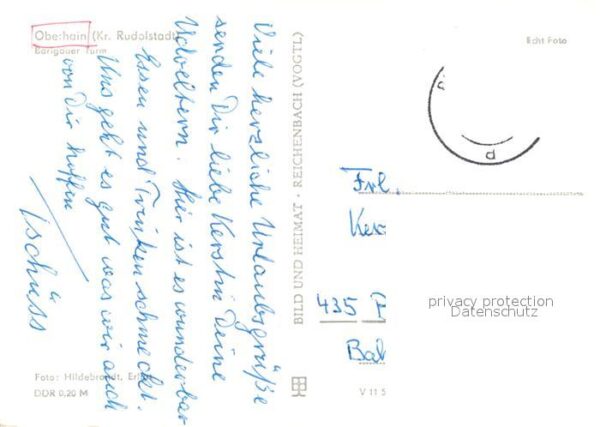 Obe:hain (Kr. Rudolstadt)
Barigauer Turm
Echt Foto
Viele herzliche Urlaubsgrüße
senden Dir liebe Kerstin Deine
Uroeltern. Hier ist es wunderbar
Essen und Trinken schmeckt.
Uns geht es gut was wir auch
von Dir hoffen
Tschüss
BILD UND HEIMAT · REICHENBACH (VOGTL)
Frl.
Ker
435 F
Bal
privacy protection
Datenschutz
Foto: Hildebrandt, Erf
DDR 0,20 M
V 11 5